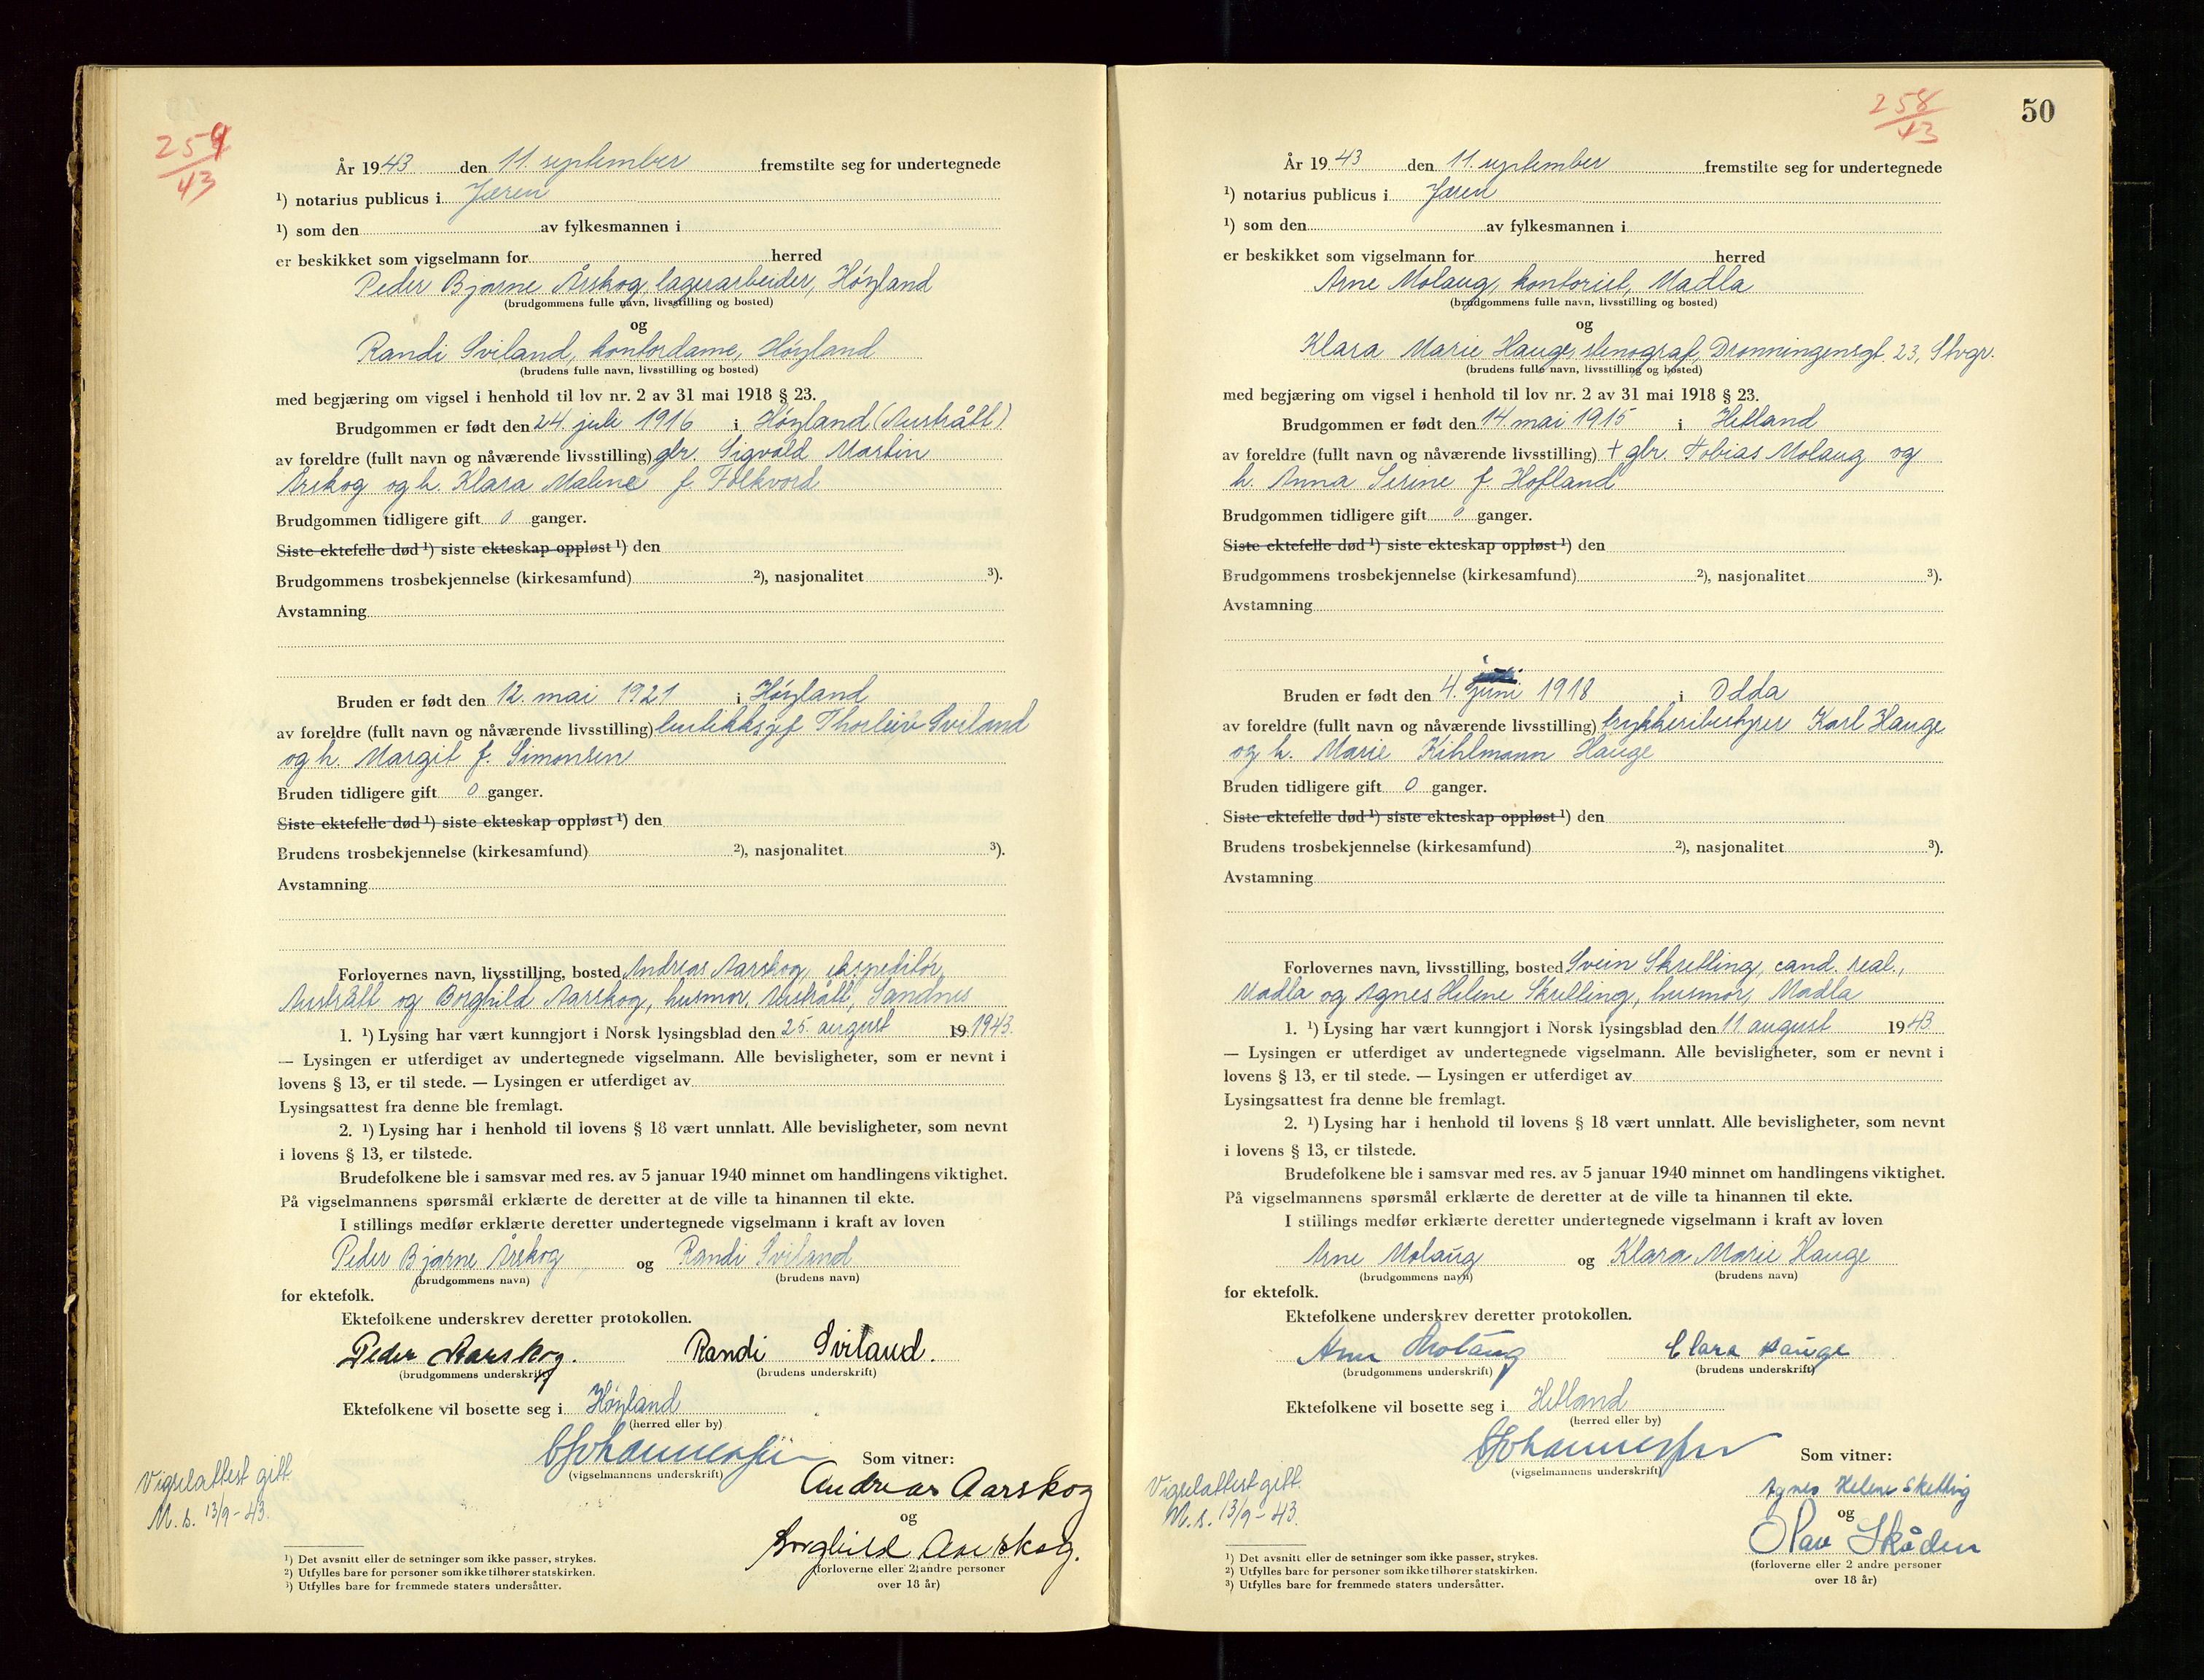 259/43
År 1943 den 11. september fremstilte seg for undertegnede
¹) notarius publicus i Jæren
¹) som den av fylkesmannen i
er beskikket som vigselmann for herred
Peder Bjarne Årskog, lagerarbeider, Høyland
(brudgommens fulle navn, livsstilling og bosted)
og
Randi Sviland, kontordame, Høyland
(brudens fulle navn, livsstilling og bosted)
med begjæring om vigsel i henhold til lov nr. 2 av 31 mai 1918 § 23.
Brudgommen er født den 24. juli 1916 i Høyland (Austrått)
av foreldre (fullt navn og nåværende livsstilling) gbr. Sigvald Martin
Årskog og h. Klara Malene f. Folkvord
Brudgommen tidligere gift 0 ganger.
Siste ektefelle død ¹) siste ekteskap oppløst ¹) den
Brudgommens trosbekjennelse (kirkesamfund) ²), nasjonalitet ³).
Avstamning
Bruden er født den 12. mai 1921 i Høyland
av foreldre (fullt navn og nåværende livsstilling) butikksjef Thorleiv Sviland
og h. Margit f. Simonsen
Bruden tidligere gift 0 ganger.
Siste ektefelle død ¹) siste ekteskap oppløst ¹) den
Brudens trosbekjennelse (kirkesamfund) ²), nasjonalitet ³).
Avstamning
Forlovernes navn, livsstilling, bosted Andreas Aarskog, ekspeditør,
Austrått og Borghild Aarskog, husmor, Austrått, Sandnes
1. ¹) Lysing har vært kunngjort i Norsk lysingsblad den 25. august 19 1943.
— Lysingen er utferdiget av undertegnede vigselmann. Alle bevisligheter, som er nevnt i
lovens § 13, er til stede. — Lysingen er utferdiget av
Lysingsattest fra denne ble fremlagt.
2. ¹) Lysing har i henhold til lovens § 18 vært unnlatt. Alle bevisligheter, som nevnt
i lovens § 13, er tilstede.
Brudefolkene ble i samsvar med res. av 5 januar 1940 minnet om handlingens viktighet.
På vigselmannens spørsmål erklærte de deretter at de ville ta hinannen til ekte.
I stillings medfør erklærte deretter undertegnede vigselmann i kraft av loven
Peder Bjarne Årskog og Randi Sviland
(brudgommens navn) (brudens navn)
for ektefolk.
Ektefolkene underskrev deretter protokollen.
Peder Aarskog. Randi Sviland.
(brudgommens underskrift) (brudens underskrift)
Ektefolkene vil bosette seg i Høyland
(herred eller by)
(vigselmannens underskrift) Som vitner:
Andreas Aarskog
og
Borghild Aarskog.
(forloverne eller 2 andre personer
over 18 år)
Vigselattest gitt.
M. s. 13/9-43.
¹) Det avsnitt eller de setninger som ikke passer, strykes.
²) Utfylles bare for personer som ikke tilhører statskirken.
³) Utfylles bare for fremmede staters undersåtter.
258/43 50
År 1943 den 11. september fremstilte seg for undertegnede
¹) notarius publicus i Jæren
¹) som den av fylkesmannen i
er beskikket som vigselmann for herred
Arne Molaug, kontorist, Madla
(brudgommens fulle navn, livsstilling og bosted)
og
Klara Marie Hauge, stenograf, Dronningensgt. 23, Stvgr.
(brudens fulle navn, livsstilling og bosted)
med begjæring om vigsel i henhold til lov nr. 2 av 31 mai 1918 § 23.
Brudgommen er født den 14. mai 1915 i Hetland
av foreldre (fullt navn og nåværende livsstilling) + gbr. Tobias Molaug og
h. Anna Serine f. Hofland
Brudgommen tidligere gift 0 ganger.
Siste ektefelle død ¹) siste ekteskap oppløst ¹) den
Brudgommens trosbekjennelse (kirkesamfund) ²), nasjonalitet ³).
Avstamning
Bruden er født den 4. juni 1918 i Odda
av foreldre (fullt navn og nåværende livsstilling) trykkeribestyrer Karl Hauge
og h. Marie Kihlmann Hauge
Bruden tidligere gift 0 ganger.
Siste ektefelle død ¹) siste ekteskap oppløst ¹) den
Brudens trosbekjennelse (kirkesamfund) ²), nasjonalitet ³).
Avstamning
Forlovernes navn, livsstilling, bosted Svein Skretting, cand. real.,
Madla og Agnes Helene Skretting, husmor, Madla
1. ¹) Lysing har vært kunngjort i Norsk lysingsblad den 11 august 1943
— Lysingen er utferdiget av undertegnede vigselmann. Alle bevisligheter, som er nevnt i
lovens § 13, er til stede. — Lysingen er utferdiget av
Lysingsattest fra denne ble fremlagt.
2. ¹) Lysing har i henhold til lovens § 18 vært unnlatt. Alle bevisligheter, som nevnt
i lovens § 13, er tilstede.
Brudefolkene ble i samsvar med res. av 5 januar 1940 minnet om handlingens viktighet.
På vigselmannens spørsmål erklærte de deretter at de ville ta hinannen til ekte.
I stillings medfør erklærte deretter undertegnede vigselmann i kraft av loven
Arne Molaug og Klara Marie Hauge
(brudgommens navn) (brudens navn)
for ektefolk.
Ektefolkene underskrev deretter protokollen.
Arne Molaug Clara Hauge
(brudgommens underskrift) (brudens underskrift)
Ektefolkene vil bosette seg i Hetland
(herred eller by)
(vigselmannens underskrift) Som vitner:
Agnes Helene Skretting
og
Olav Skåden
(forloverne eller 2 andre personer
over 18 år)
Vigselattest gitt.
M. s. 13/9-43.
¹) Det avsnitt eller de setninger som ikke passer, strykes.
²) Utfylles bare for personer som ikke tilhører statskirken.
³) Utfylles bare for fremmede staters undersåtter.